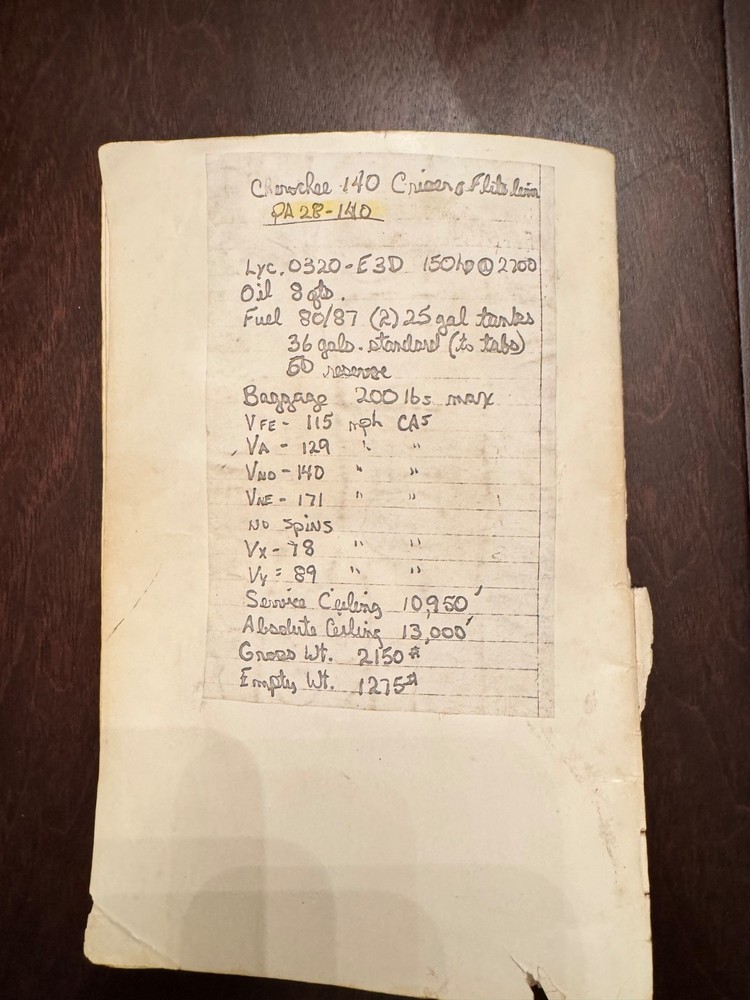 Cherokee 140 Criser & Flite Liner
PA 28-140
Lyc. O320-E3D 150 hp @ 2700
Oil 8 qts.
Fuel 80/87 (2) 25 gal tanks
36 gals. standard (to tabs)
50 reserve
Baggage 200 lbs max
VFE - 115 mph CAS
VA - 129 " "
VNO - 140 " "
VNE - 171 " "
NO SPINS
VX - 78 " "
VY = 89 " "
Service Ceiling 10,950'
Absolute Ceiling 13,000'
Gross Wt. 2150#
Empty Wt. 1275#